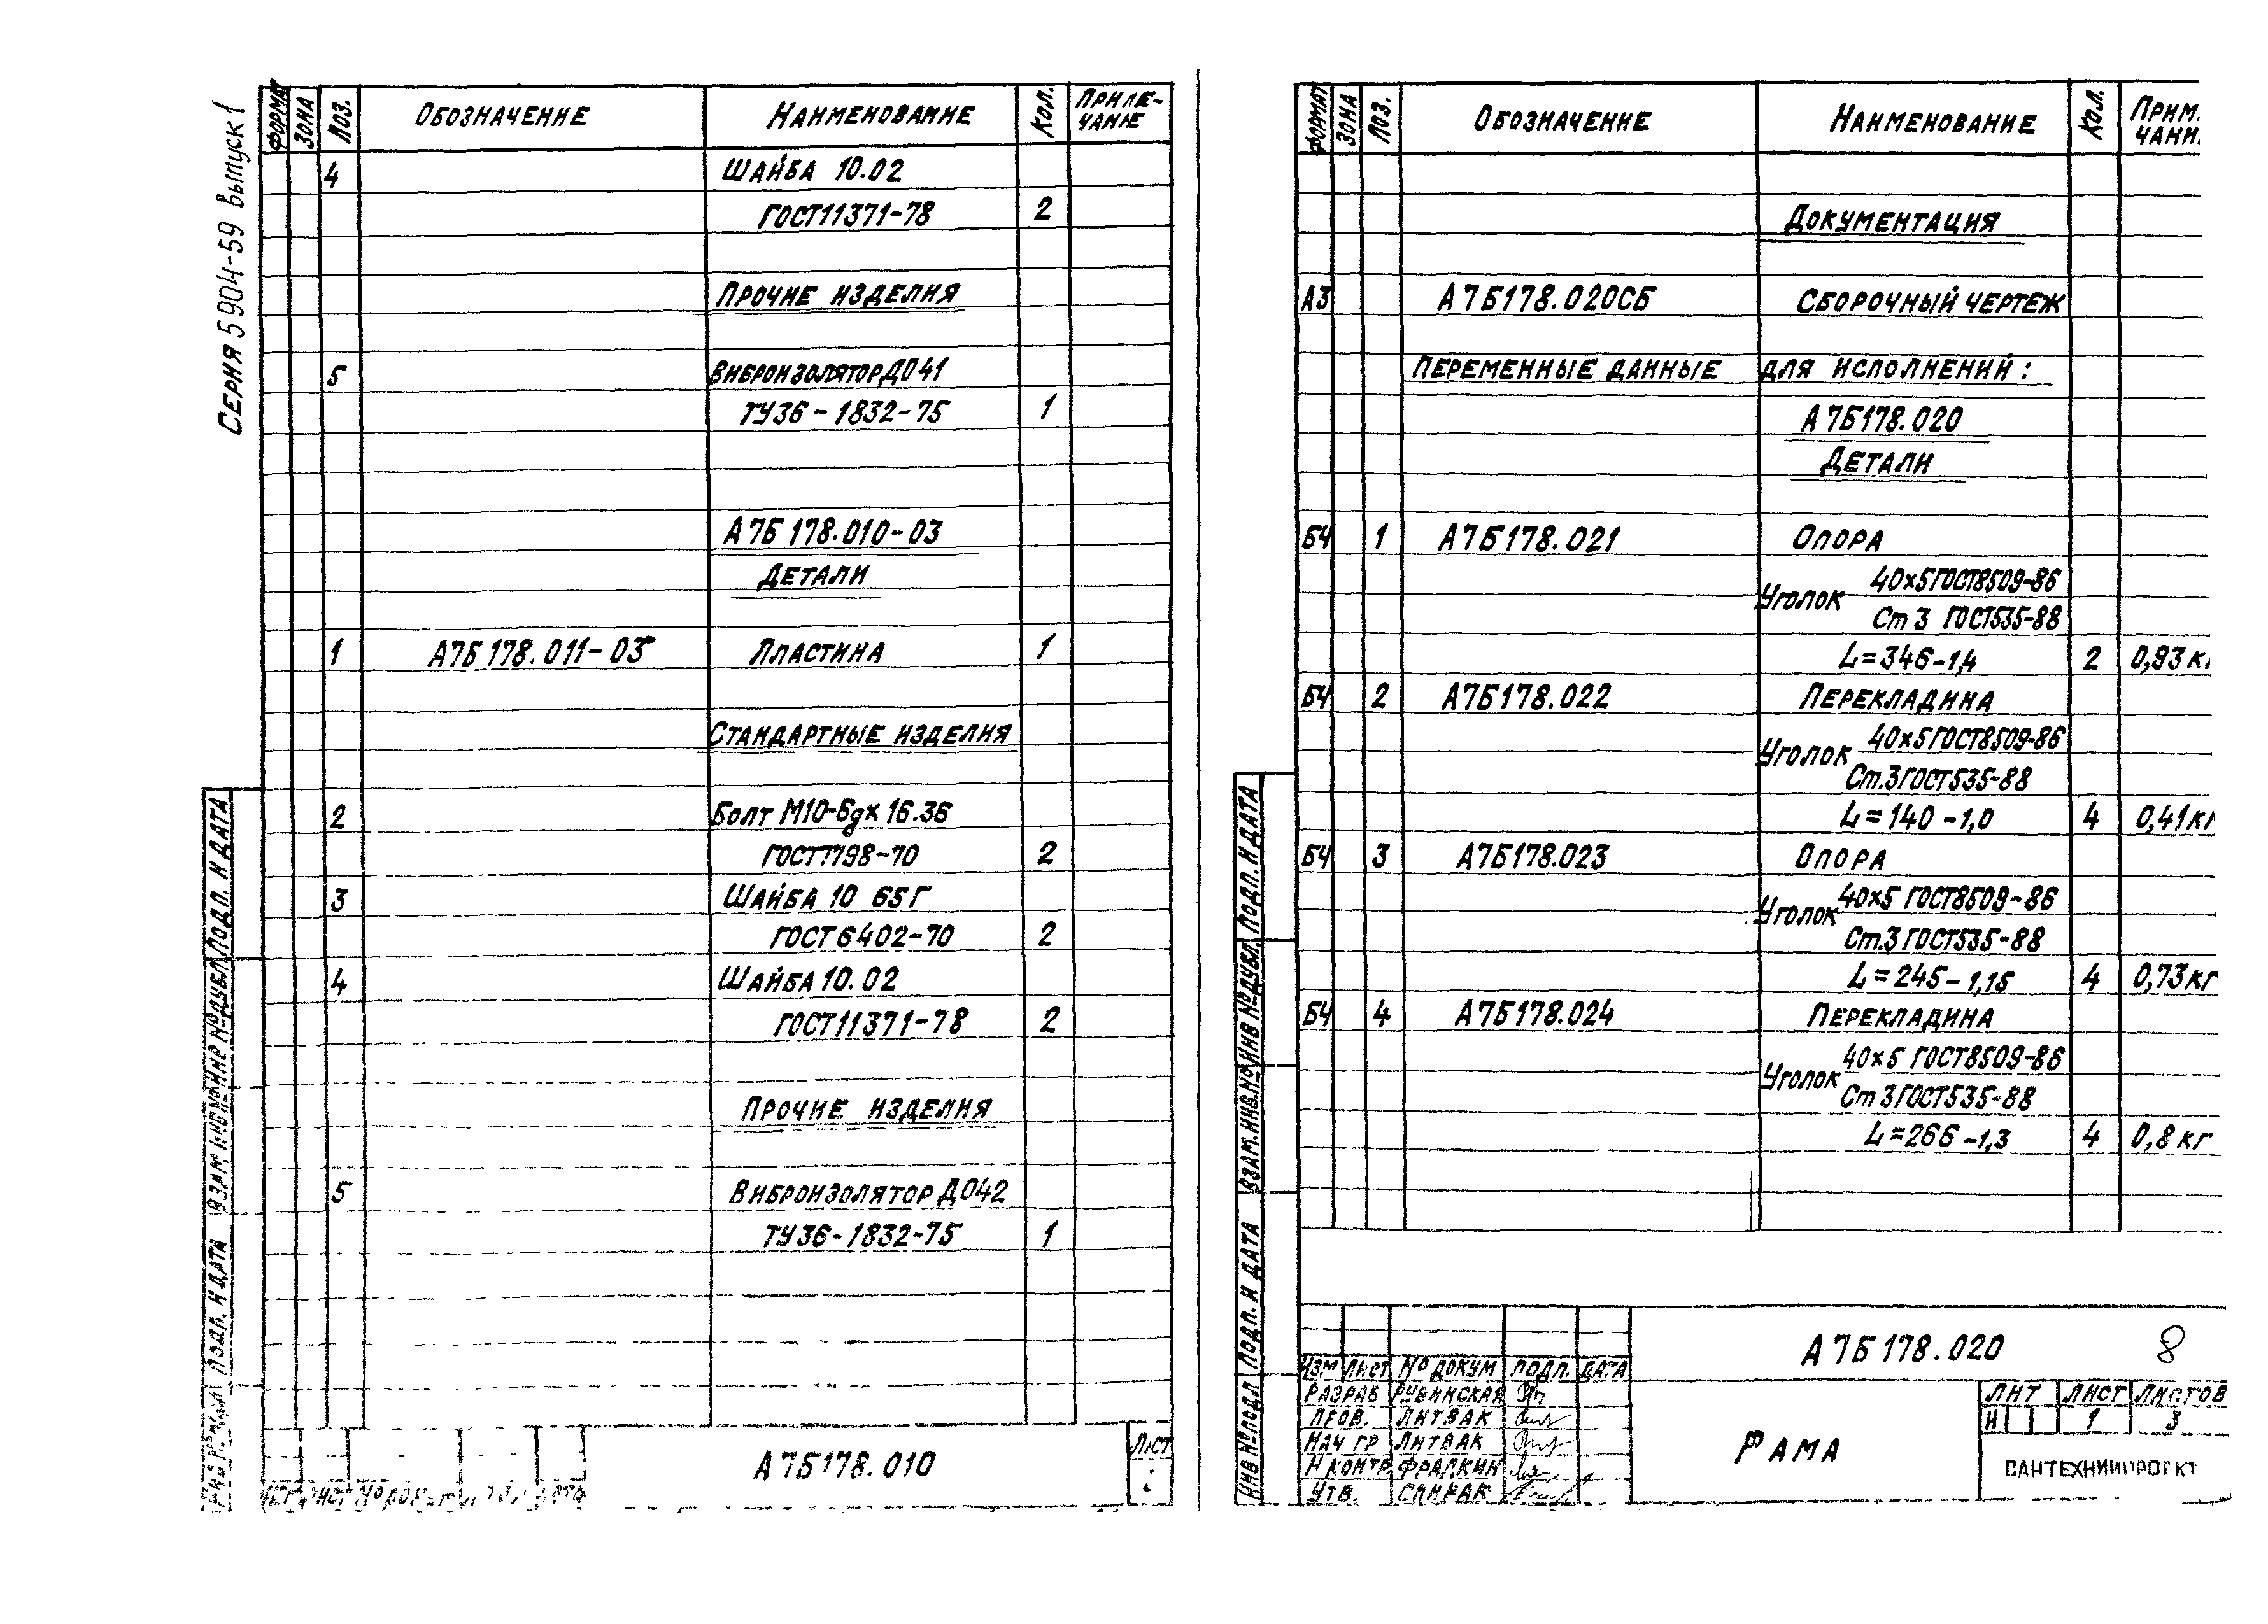 Серия 5904-59 выпуск 1
ФОРМАТ ЗОНА ПОЗ. ОБОЗНАЧЕНИЕ НАИМЕНОВАНИЕ КОЛ. ПРИМЕ-ЧАНИЕ
4 ШАЙБА 10.02
ГОСТ11371-78 2
ПРОЧИЕ ИЗДЕЛИЯ
5 ВИБРОИЗОЛЯТОР ДО41
ТУ36-1832-75 1
А7Б178.010-03
ДЕТАЛИ
1 А7Б178.011-03 ПЛАСТИНА 1
СТАНДАРТНЫЕ ИЗДЕЛИЯ
2 БОЛТ М10-6gх16.36
ГОСТ7798-70 2
3 ШАЙБА 10 65Г
ГОСТ6402-70 2
4 ШАЙБА 10.02
ГОСТ11371-78 2
ПРОЧИЕ ИЗДЕЛИЯ
5 ВИБРОИЗОЛЯТОР ДО42
ТУ36-1832-75 1
ПОДП. И ДАТА
ВЗАМ.
ПОДП. И ДАТА
А7Б178.010
ЛИСТ
ФОРМАТ ЗОНА ПОЗ. ОБОЗНАЧЕНИЕ НАИМЕНОВАНИЕ КОЛ. ПРИМ. ЧАНИ.
ДОКУМЕНТАЦИЯ
А3 А7Б178.020СБ СБОРОЧНЫЙ ЧЕРТЕЖ
ПЕРЕМЕННЫЕ ДАННЫЕ ДЛЯ ИСПОЛНЕНИЙ:
А7Б178.020
ДЕТАЛИ
БЧ 1 А7Б178.021 ОПОРА
УГОЛОК 40х5 ГОСТ8509-86
Ст 3 ГОСТ535-88
L=346-1,4 2 0,93 кг
БЧ 2 А7Б178.022 ПЕРЕКЛАДИНА
УГОЛОК 40х5 ГОСТ8509-86
Ст.3 ГОСТ535-88
L=140-1,0 4 0,41 кг
БЧ 3 А7Б178.023 ОПОРА
УГОЛОК 40х5 ГОСТ8509-86
Ст.3 ГОСТ535-88
L=245-1,15 4 0,73 кг
БЧ 4 А7Б178.024 ПЕРЕКЛАДИНА
УГОЛОК 40х5 ГОСТ8509-86
Ст 3 ГОСТ535-88
L=266-1,3 4 0,8 кг
ПОДП. И ДАТА
ИНВ № ДУБЛ.
ВЗАМ. ИНВ. №
ПОДП. И ДАТА
ИНВ № ПОДЛ
А7Б178.020 8
ИЗМ ЛИСТ № ДОКУМ ПОДП. ДАТА
РАЗРАБ РУБИНСКАЯ
ПРОВ. ЛИТВАК
НАЧ ГР ЛИТВАК
Н КОНТР. ФРАЛКИН
УТВ. СПИВАК
РАМА
ЛИТ ЛИСТ ЛИСТОВ
И 1 3
САНТЕХНИИПРОЕКТ